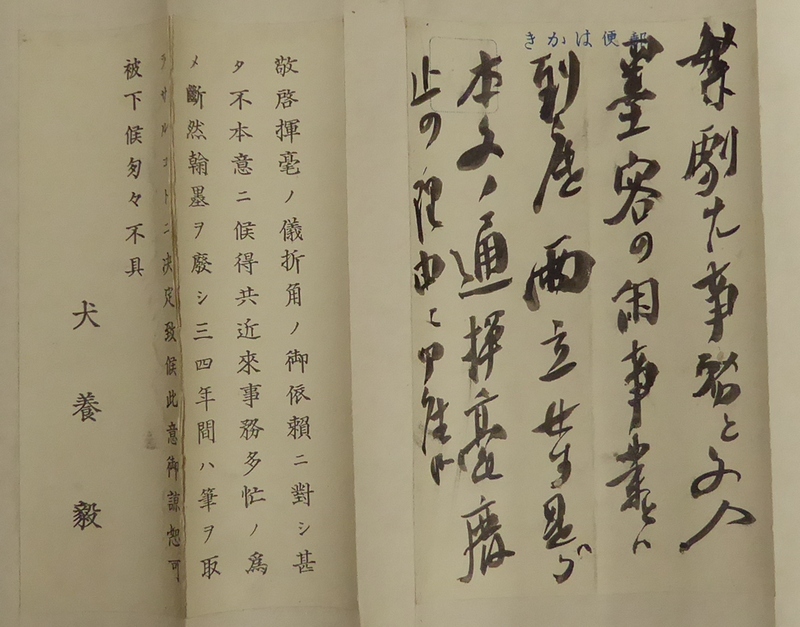 郵便はかき
繁劇な事務と文人
墨客の閑事業とハ
到底兩立せす是が
本文ノ通揮毫廢
止の理由ニ
敬啓揮毫ノ儀折角ノ御依賴ニ對シ甚
タ不本意ニ候得共近來事務多忙ノ爲
メ斷然翰墨ヲ廢シ三四年間ハ筆ヲ取
ラサルコトニ決定致候此意御諒恕可
被下候匆々不具
犬養毅